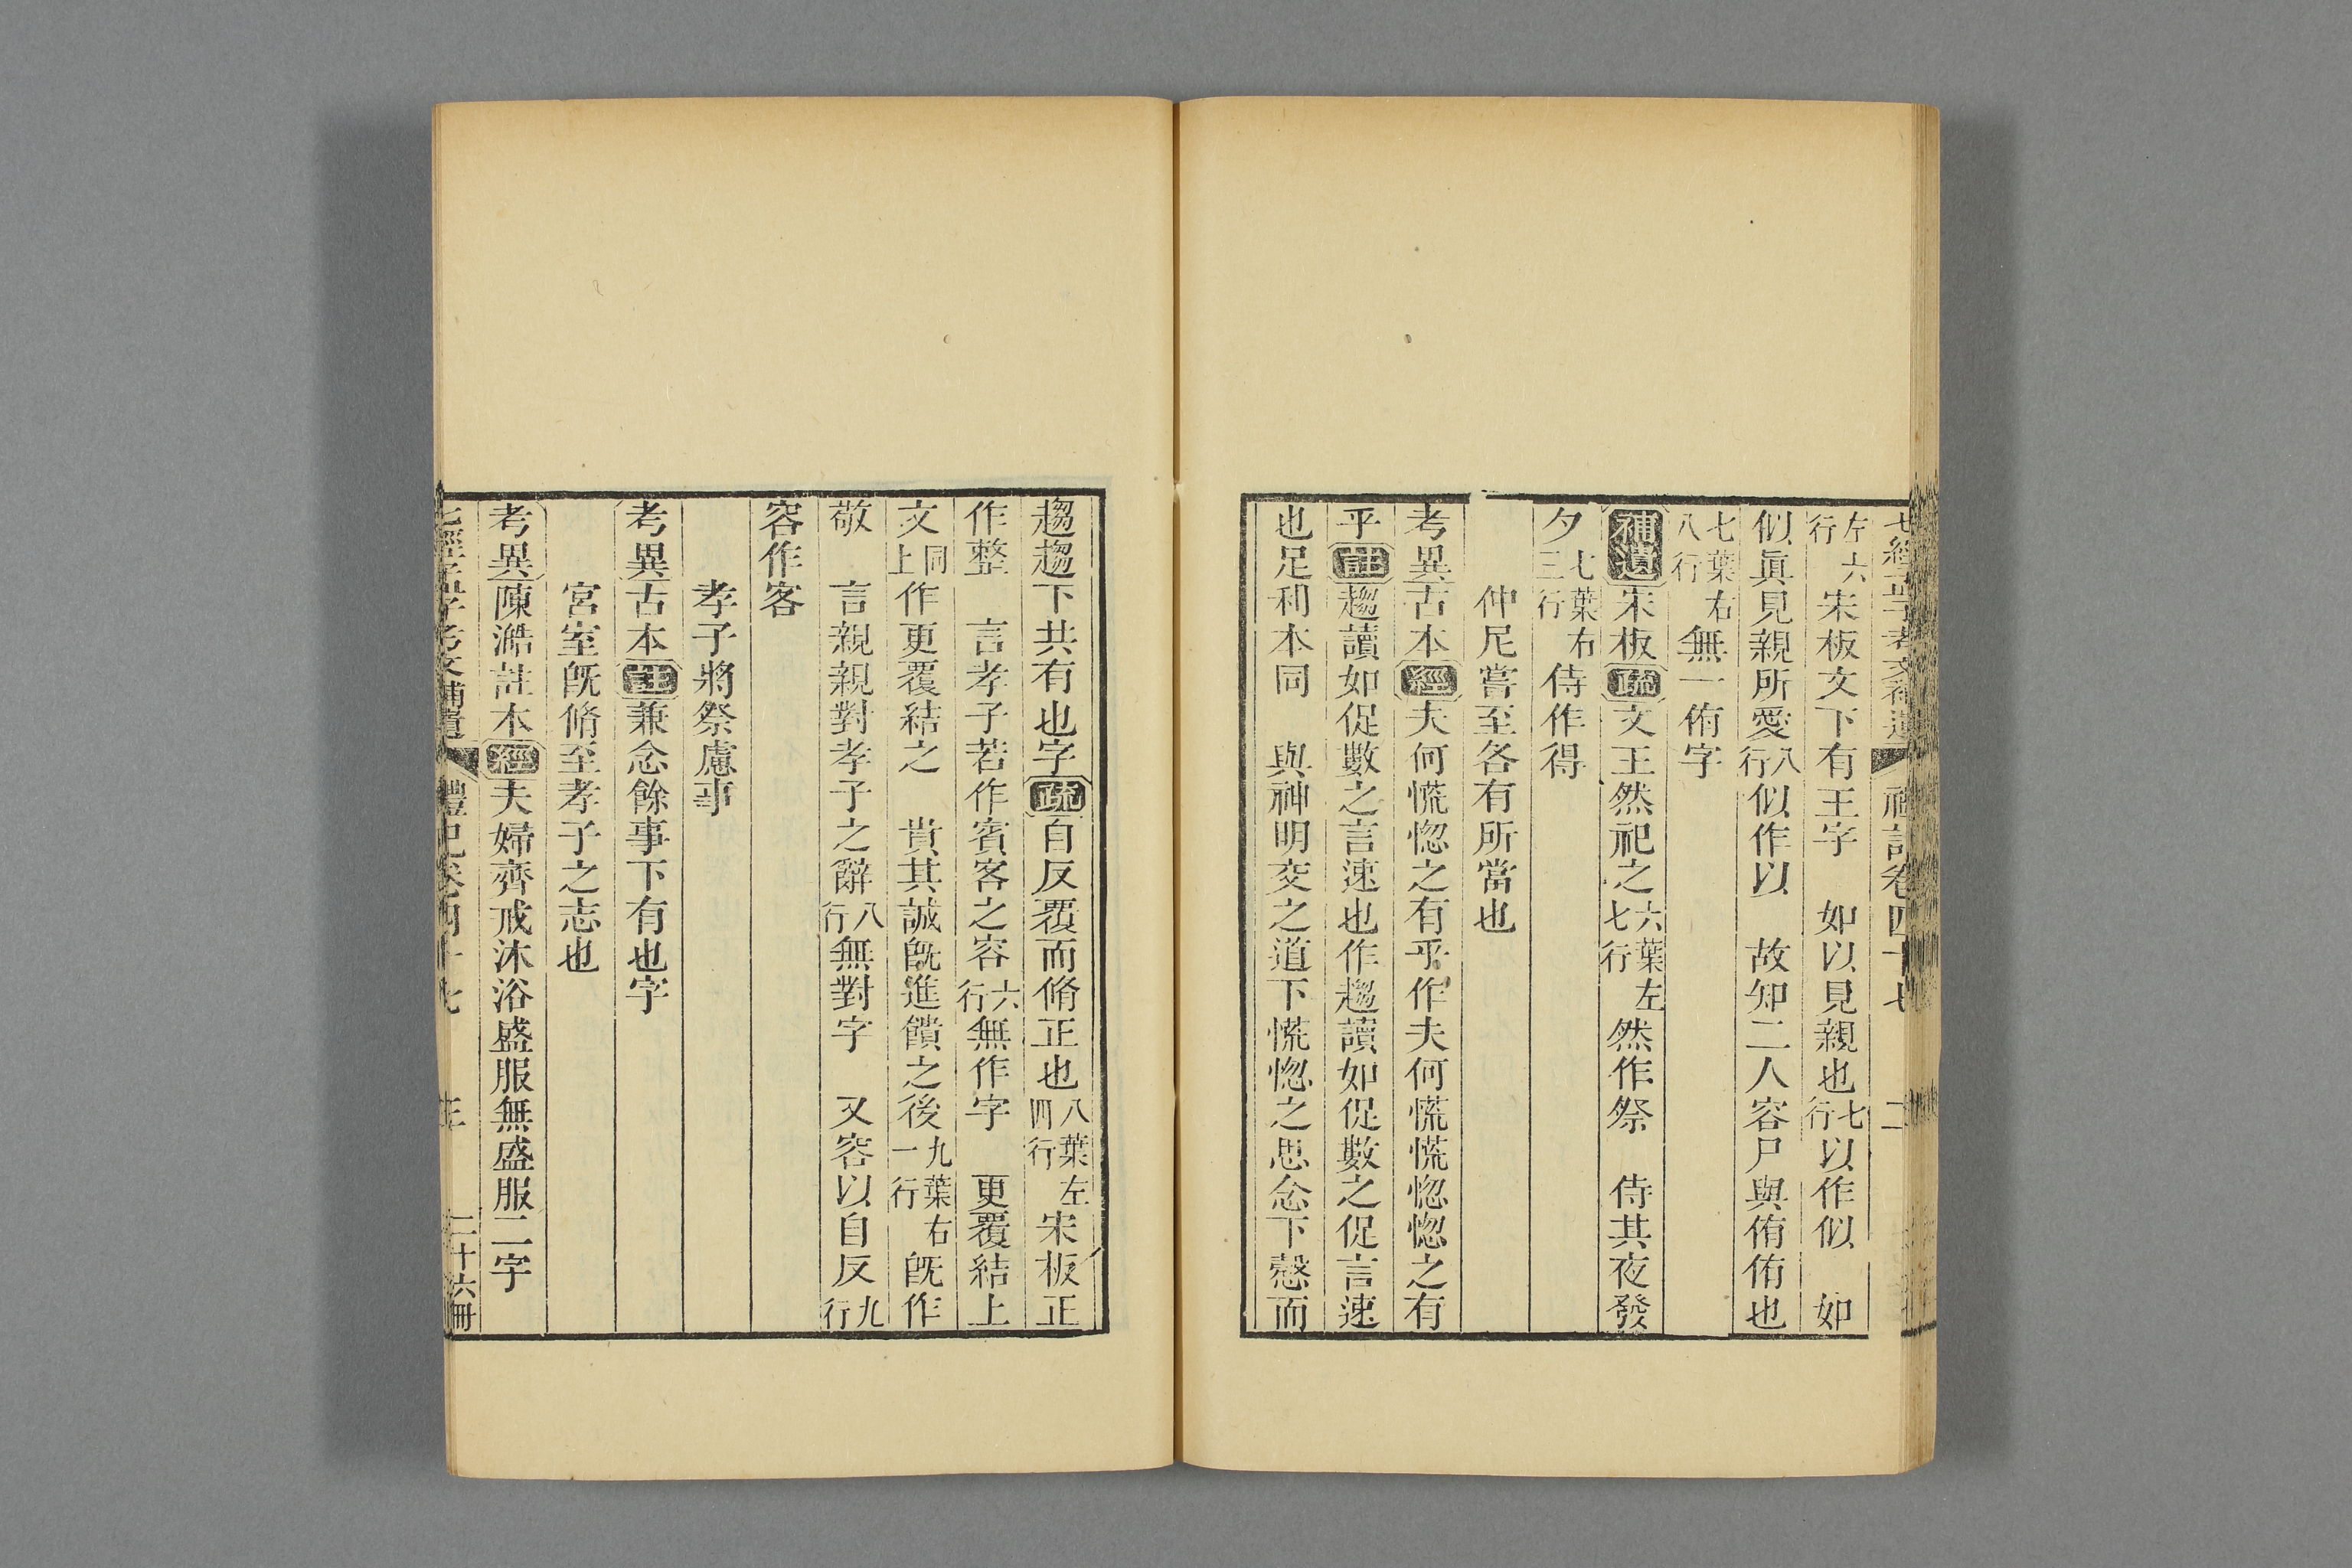 七經孟子考文補遺 禮記卷四十七 二
左六行宋板文下有王字 如以見親也七行以作似 如
似眞見親所愛八行似作以 故知二人容尸與侑侑也
七葉右八行無一侑字
補遺宋板疏文王然祀之六葉左七行然作祭 侍其夜發
夕七葉右三行侍作得
仲尼嘗至各有所當也
考異古本經夫何慌惚之有乎作夫何慌慌惚惚之有
乎註趨讀如促數之言速也作趨讀如促數之促言速
也足利本同 與神明交之道下慌惚之思念下慤而
趨趨下共有也字疏自反覆而脩正也八葉左四行宋板正
作整 言孝子若作賓客之容六行無作字 更覆結上
文同上作更覆結之 貴其誠旣進饋之後九葉右一行旣作
敬 言親親對孝子之辭八行無對字 又容以自反九行
容作客
孝子將祭慮事
考異古本註兼念餘事下有也字
宮室旣脩至孝子之志也
考異陳澔註本經夫婦齊戒沐浴盛服無盛服二字
七經孟子考文補遺 禮記卷四十七 三 二十六冊